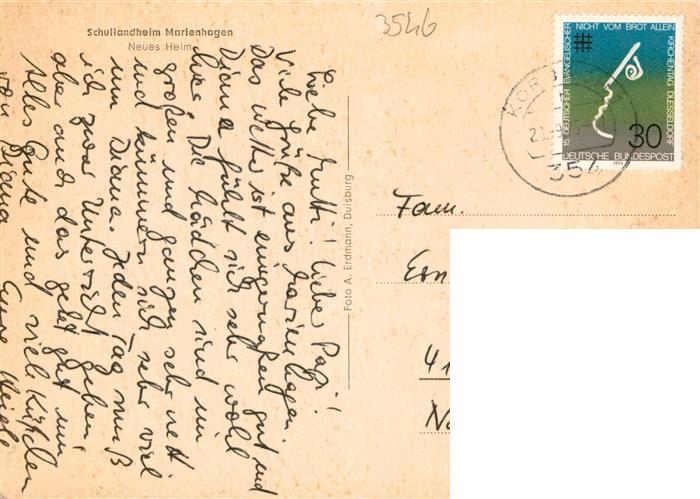 Schullandheim Marienhagen
Neues Heim
3546
Liebe Mutti! Lieber Papi!
Viele Grüße aus Marienhagen.
Das Wetter ist einigermaßen gut und
Diana fühlt sich sehr wohl
hier. Die Mädchen sind im
großen und ganzen sehr nett
und kümmern sich sehr viel
um Diana. Jeden Tag muß
ich zwar Unterricht geben
aber auch das geht gut.
Alles Gute und viele Küßchen
von Diana Eure
Foto A. Erdmann, Duisburg
15. DEUTSCHER EVANGELISCHER KIRCHENTAG DUESSELDORF
NICHT VOM BROT ALLEIN
30
DEUTSCHE BUNDESPOST
1973
KORB
354
Fam.
Ern
41
N